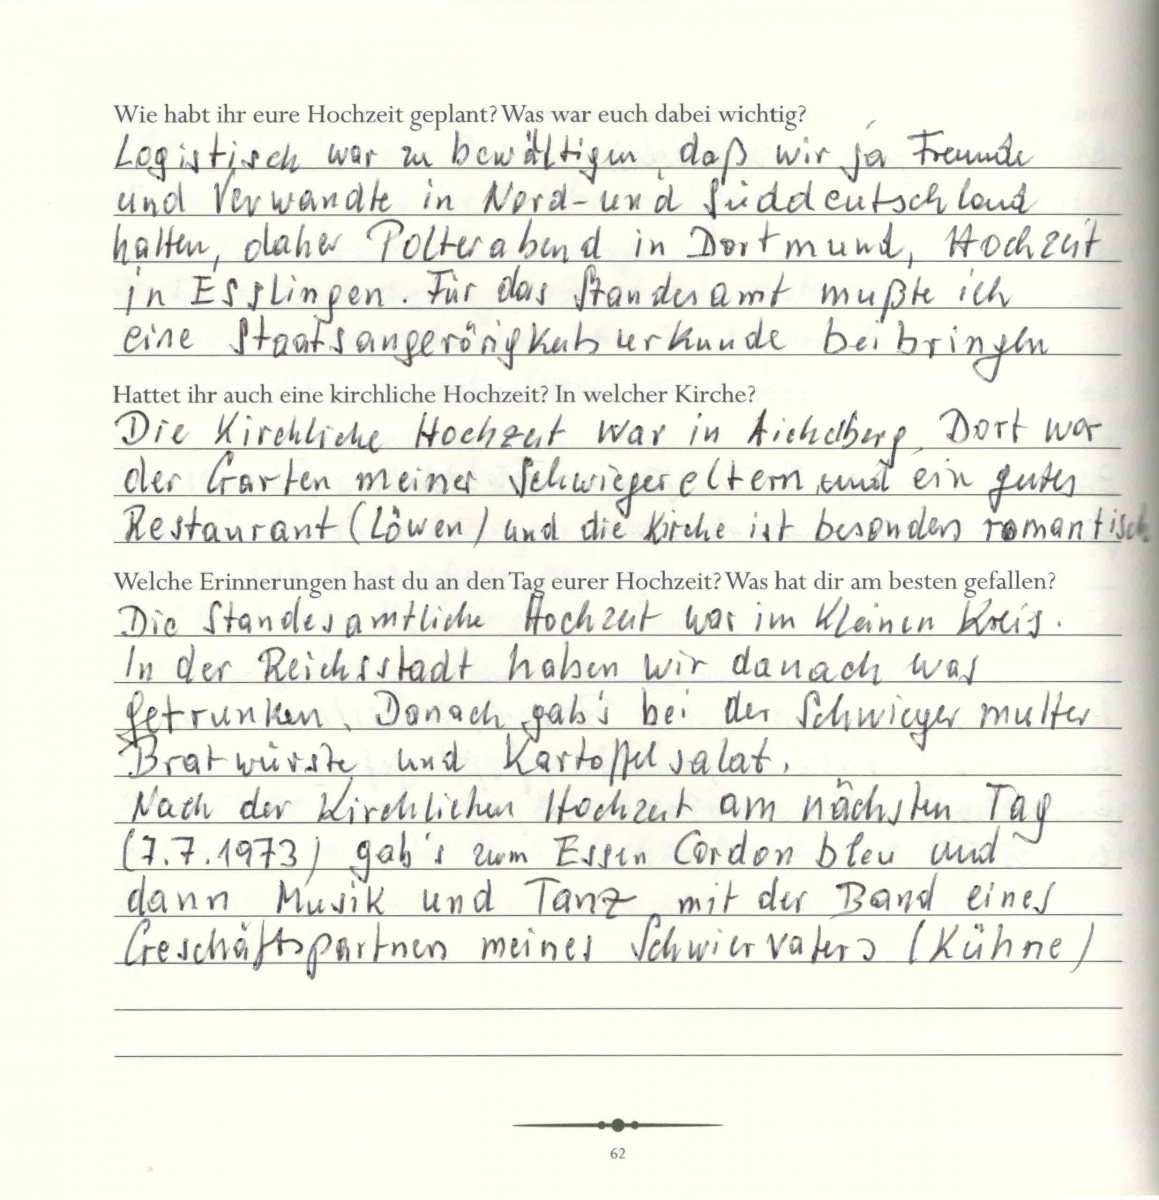 Wie habt ihr eure Hochzeit geplant? Was war euch dabei wichtig?
Logistisch war zu bewältigen, daß wir ja Freunde
und Verwandte in Nord- und Süddeutschland
hatten, daher Polterabend in Dortmund, Hochzeit
in Esslingen. Für das Standesamt mußte ich
eine Staatsangerörigkeitsurkunde beibringen
Hattet ihr auch eine kirchliche Hochzeit? In welcher Kirche?
Die Kirchliche Hochzeit war in Aichelberg. Dort war
der Garten meiner Schwiegereltern und ein gutes
Restaurant (Löwen) und die Kirche ist besonders romantisch
Welche Erinnerungen hast du an den Tag eurer Hochzeit? Was hat dir am besten gefallen?
Die Standesamtliche Hochzeit war im Kleinen Kreis.
In der Reichsstadt haben wir danach was
getrunken. Danach gab's bei der Schwiegermutter
Bratwürste und Kartoffelsalat.
Nach der Kirchlichen Hochzeit am nächsten Tag
(7.7.1973) gab's zum Essen Cordon bleu und
dann Musik und Tanz mit der Band eines
Geschäftspartners meines Schwiervaters (Kühne)
62